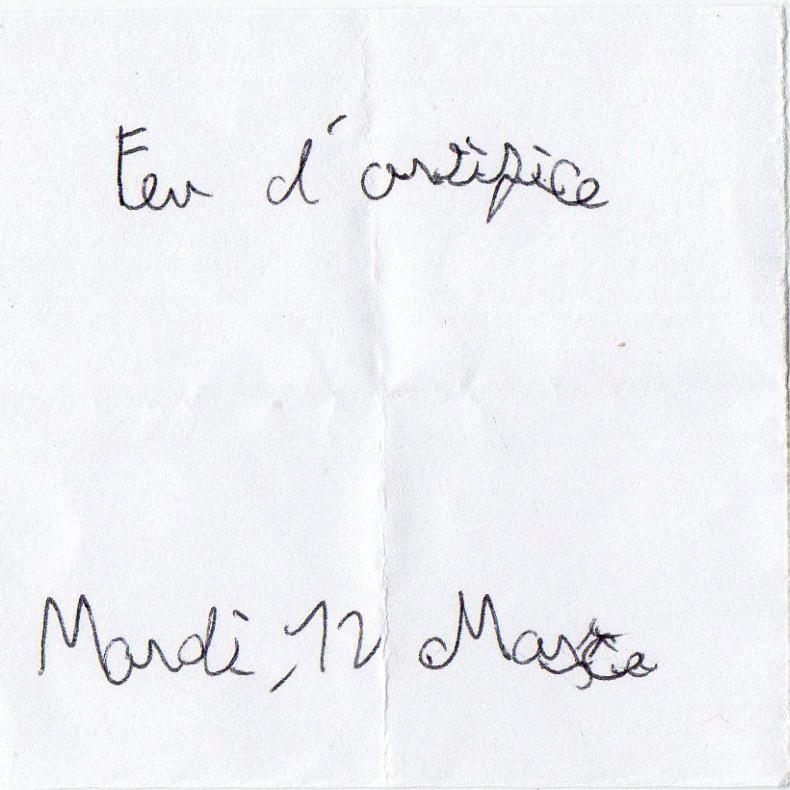 Feu d'artifice
Mardi, 12